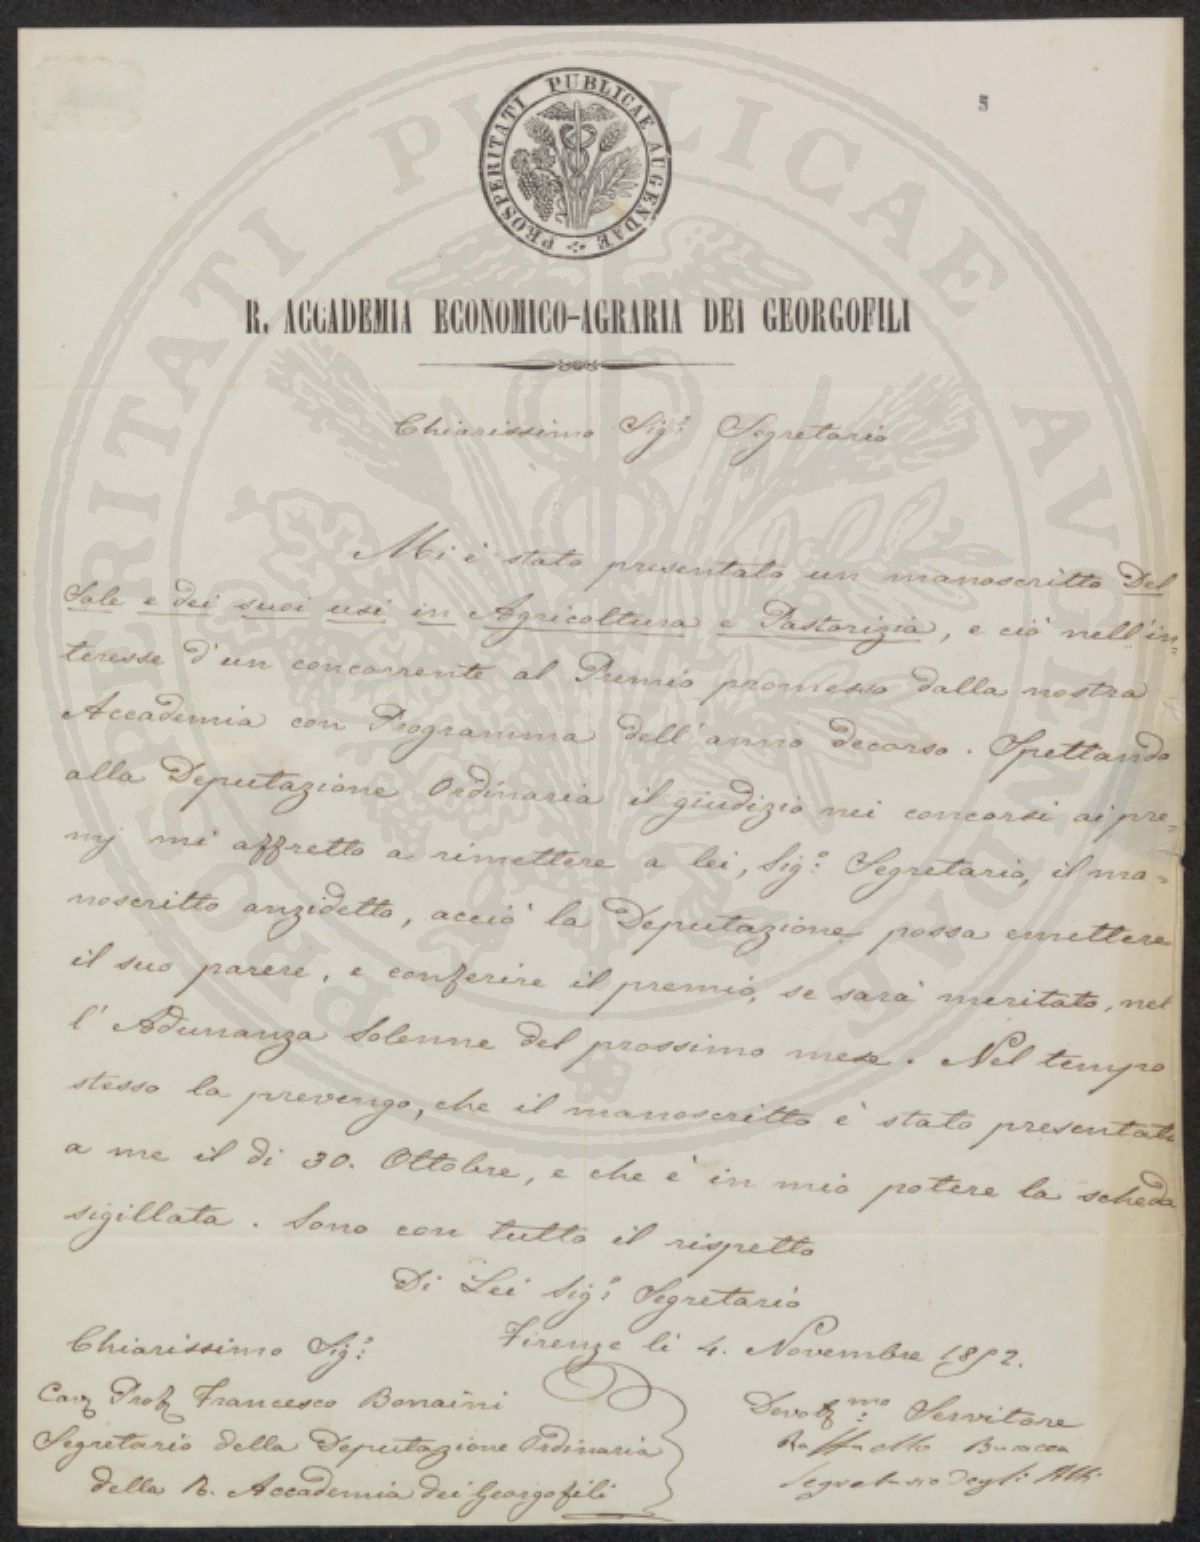 PROSPERITATI PUBLICAE AUGENDAE
3
R. ACCADEMIA ECONOMICO-AGRARIA DEI GEORGOFILI
Chiarissimo Sig.º Segretario
Mi è stato presentato un manoscritto Del
Sale e dei suoi usi in Agricoltura e Pastorizia, e ciò nell'in=
teresse d'un concorrente al Premio promesso dalla nostra
Accademia con Programma dell'anno decorso. Spettando
alla Deputazione Ordinaria il giudizio nei concorsi ai pre=
mj mi affretto a rimettere a lei, Sig.º Segretario, il ma=
noscritto anzidetto, acciò la Deputazione possa emettere
il suo parere, e conferire il premio, se sarà meritato, nel
l'Adunanza Solenne del prossimo mese. Nel tempo
stesso la prevengo, che il manoscritto è stato presentato
a me il dì 30. Ottobre, e che è in mio potere la scheda
sigillata. Sono con tutto il rispetto
Di Lei Sig.º Segretario
Firenze li 4. Novembre 1852.
Chiarissimo Sig.º
Cav Prof Francesco Bonaini
Segretario della Deputazione Ordinaria
della R. Accademia dei Georgofili
Devot.mo Servitore
Raffaello Busacca
Segretario degli Atti
PROSPERITATI PUBLICAE AVGENDAE